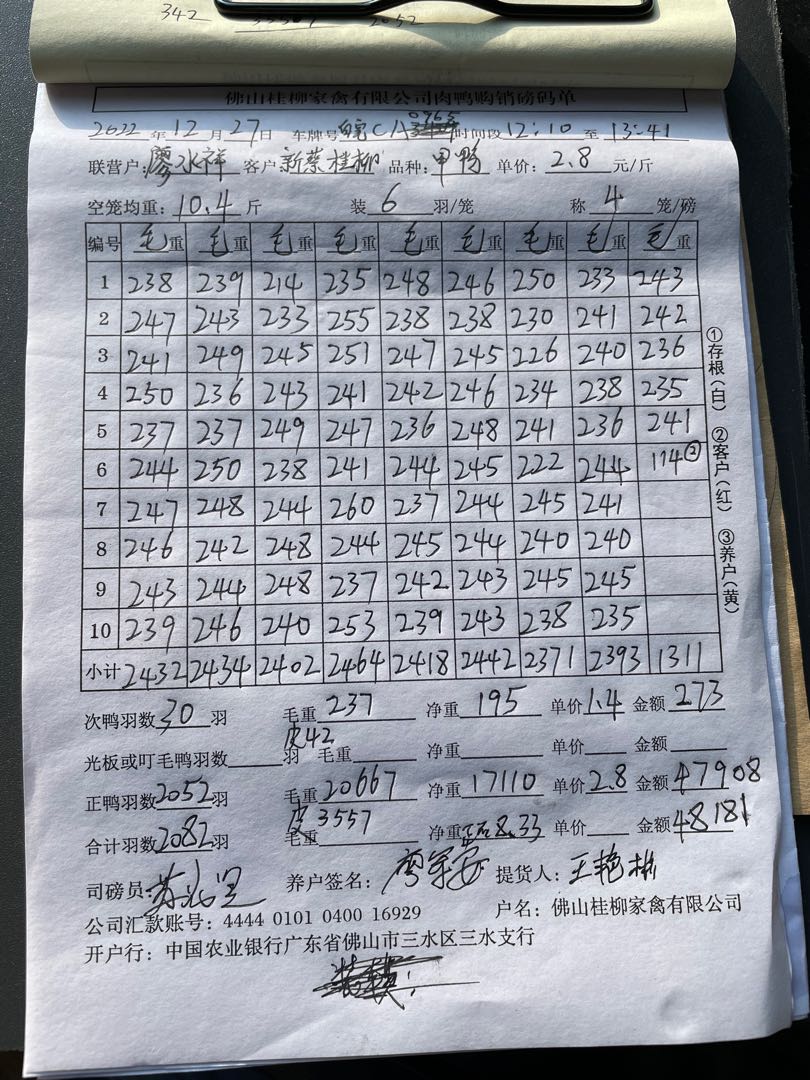 342 2052
佛山桂柳家禽有限公司肉鸭购销磅码单
2022年12月27日 车牌号 皖CA 0965 时间段 12:10 至 13:41
联营户: 廖水祥 客户: 新蔡桂柳 品种: 甲鸭 单价: 2.8 元/斤
空笼均重: 10.4 斤 装 6 羽/笼 称 4 笼/磅
编号 毛重 毛重 毛重 毛重 毛重 毛重 毛重 毛重 毛重
1 238 239 214 235 248 246 250 233 243
2 247 243 233 255 238 238 230 241 242
3 241 249 245 251 247 245 226 240 236
4 250 236 243 241 242 246 234 238 235
5 237 237 249 247 236 248 241 236 241
6 244 250 238 241 244 245 222 244 114②
7 247 248 244 260 237 244 245 241
8 246 242 248 244 245 244 240 240
9 243 244 248 237 242 243 245 245
10 239 246 240 253 239 243 238 235
小计 2432 2434 2402 2464 2418 2442 2371 2393 1311
次鸭羽数 30 羽 毛重 237 净重 195 单价 1.4 金额 273
皮42
光板或叮毛鸭羽数 羽 毛重 净重 单价 金额
正鸭羽数 2052 羽 毛重 20667 净重 17110 单价 2.8 金额 47908
合计羽数 2082 羽 皮 3557 毛重 净重 8.33 单价 金额 48181
司磅员: 养户签名: 提货人: 王艳彬
公司汇款账号: 4444 0101 0400 16929 户名: 佛山桂柳家禽有限公司
开户行: 中国农业银行广东省佛山市三水区三水支行
①存根(白) ②客户(红) ③养户(黄)